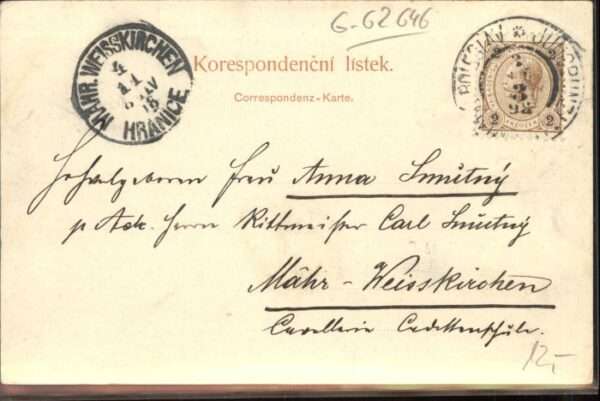 G-62646
MÄHR. WEISSKIRCHEN
4
11
98
HRANICE
Korespondenční lístek.
Correspondenz-Karte.
BOLESLAV * JUNGBUNZ
3
98
2 2
Hochwolgeboren Frau Anna Smutný
p Adr. Herrn Rittmeister Carl Smutný
Mähr-Weisskirchen
Cavallerie Cadettenschule.
12,-